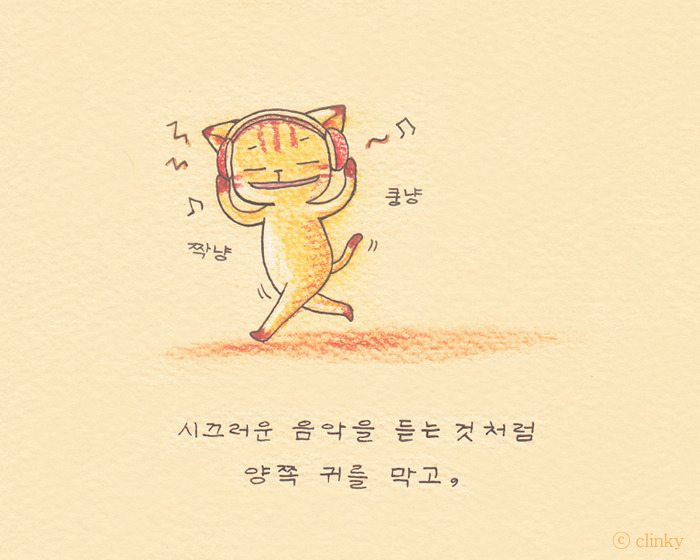 쿵냥
짝냥
시끄러운 음악을 듣는 것처럼
양쪽 귀를 막고,
ⓒ clinky